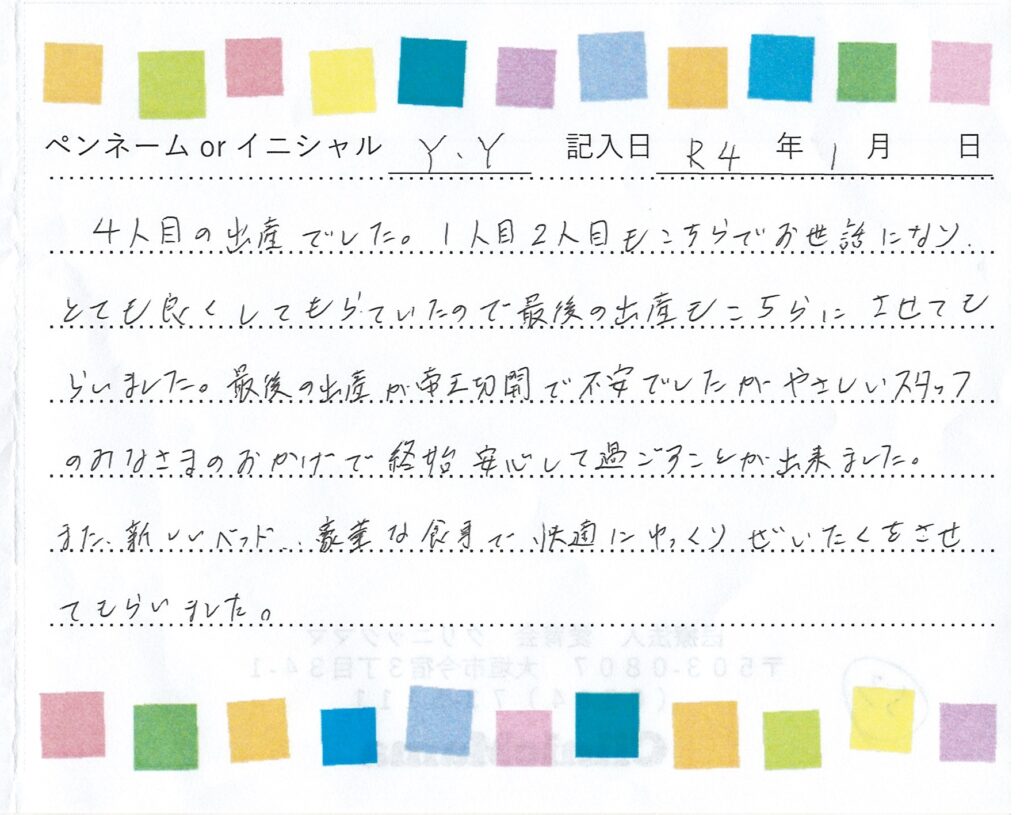 ペンネーム or イニシャル Y、Y 記入日 R4 年 1 月 日
4人目の出産でした。1人目2人目もこちらでお世話になり、
とても良くしてもらっていたので最後の出産もこちらにさせても
らいました。最後の出産が帝王切開で不安でしたがやさしいスタッフ
のみなさまのおかげで終始安心して過ごすことが出来ました。
また、新しいベッド、豪華な食事で、快適にゆっくりぜいたくをさせ
てもらいました。
医療法人 愛育会 クリニックママ
〒503-0807 大垣市今宿3丁目34-1